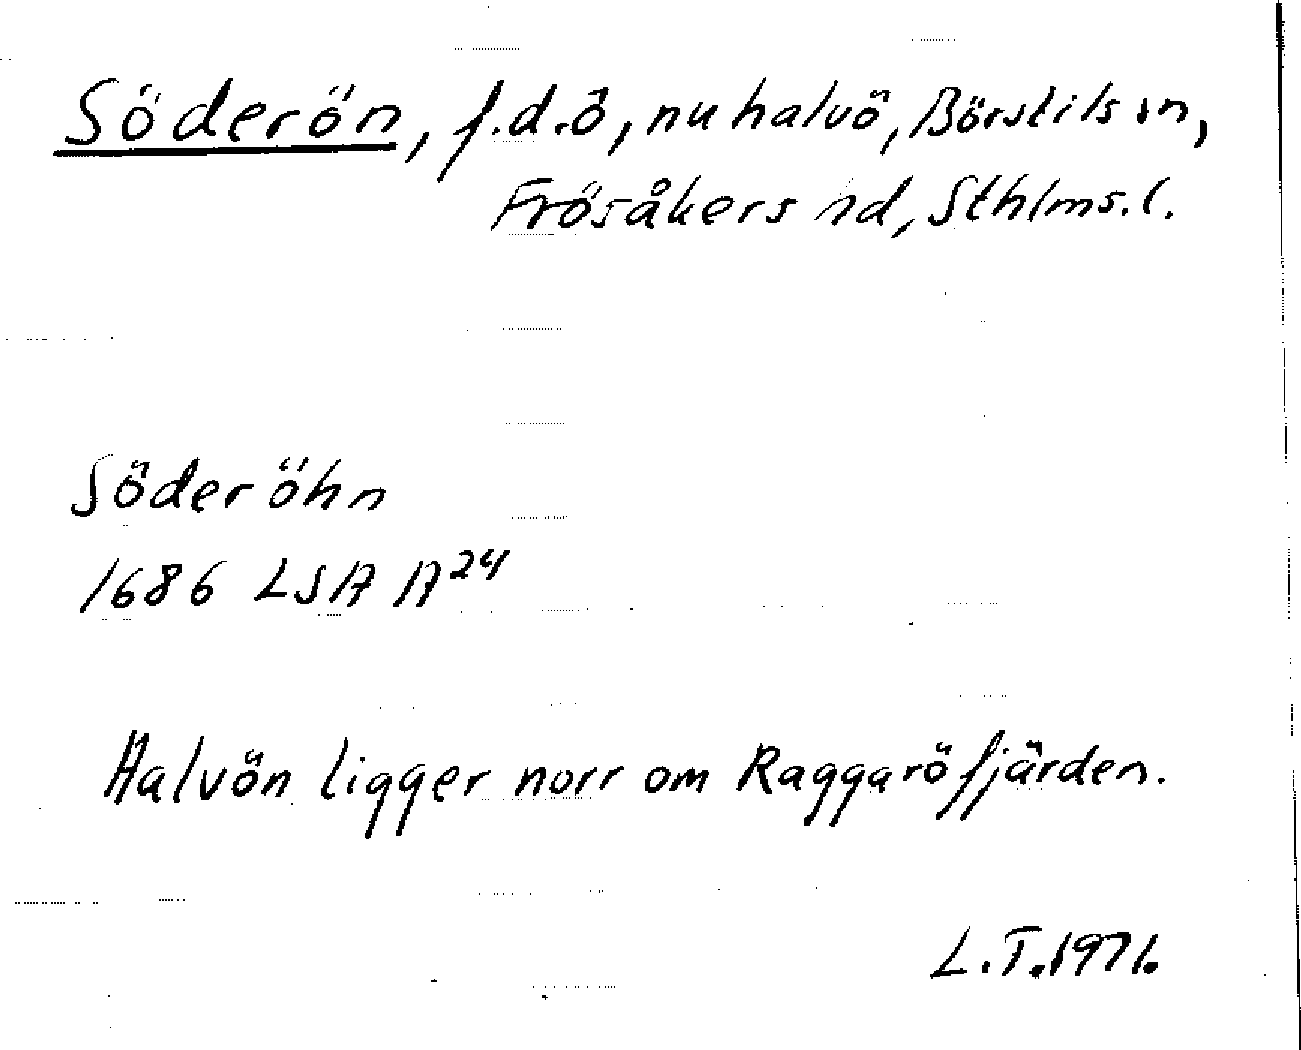 Söderön, f.d.ö, nu halvö, Börstils sn,
Frösåkers hd, Sthlms.l.
Söderöhn
1686 LSA A²⁴
Halvön ligger norr om Raggaröfjärden.
L.T.1971.